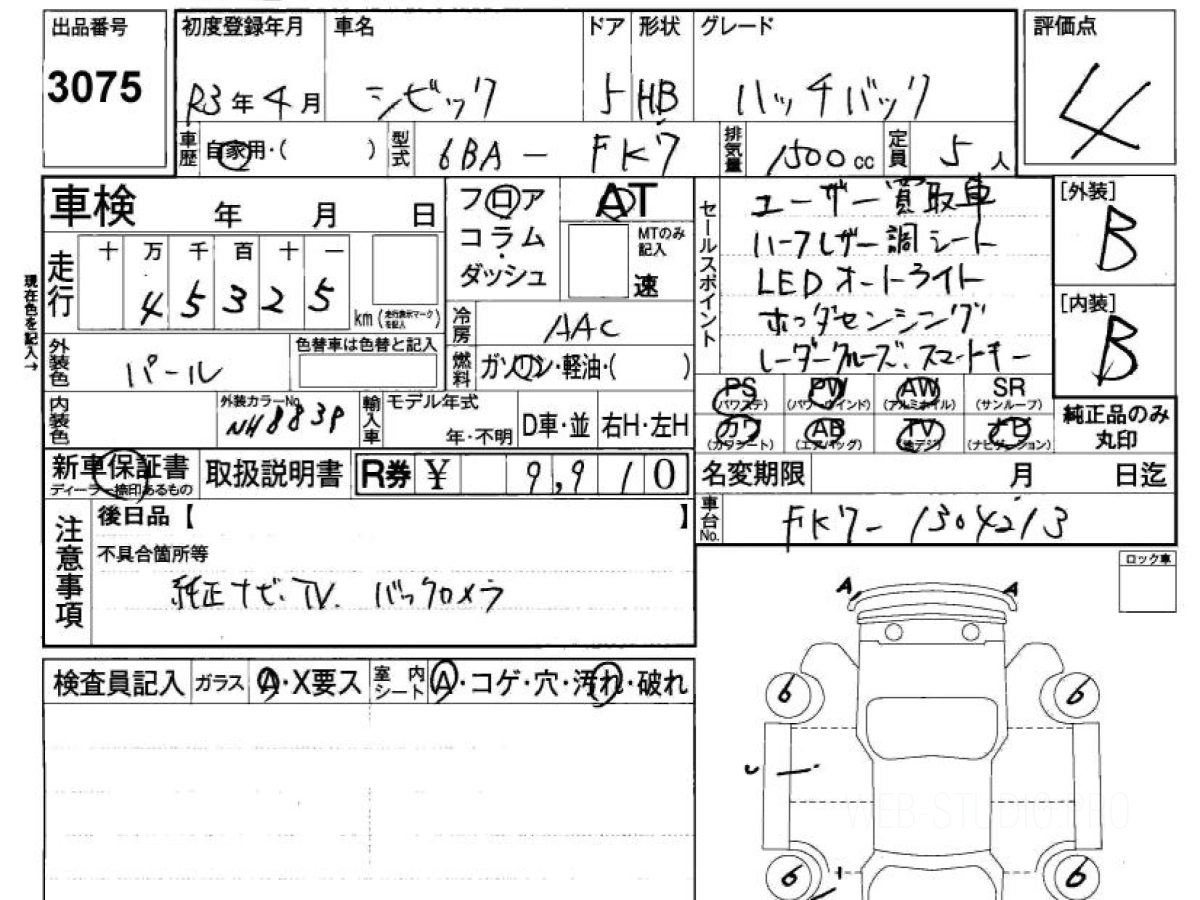 出品番号 初度登録年月 車名 ドア 形状 グレード 評価点
3075 R3年4月 シビック 5 HB ハッチバック 4
車歴 自家用・( ) 型式 6BA-FK7 排気量 1500cc 定員 5人
車検 年 月 日
フロア コラム・ダッシュ
AT
MTのみ記入
速
セールスポイント
ユーザー買取車
ハーフレザー調シート
LEDオートライト
ホンダセンシング
レーダークルーズ、スマートキー
[外装]
B
[内装]
B
現在色を記入→
走行 十 万 千 百 十 一
4 5 3 2 5 km (走行表示マークを記入)
冷房 AAC
外装色 パール 色替車は色替と記入
燃料 ガソリン・軽油・( )
内装色 外装カラーNo. NH883P
輸入車 モデル年式 年・不明 D車・並 右H・左H
PS (パワステ) PW (パワーウインド) AW (アルミホイル) SR (サンルーフ)
カワ (カワシート) AB (エアバッグ) TV (地デジ) ナビ (ナビゲーション)
純正品のみ丸印
新車保証書 ディーラー捺印あるもの 取扱説明書 R券 ¥ 9,910
名変期限 月 日迄
車台No. FK7-1304213
注意事項
後日品【 】
不具合箇所等
純正ナビ・TV. バックカメラ
ロック車
A A
検査員記入 ガラス A・X要ス 室内シート A・コゲ・穴・汚れ・破れ
6 6
WEB-STUDIO.PRO
6 6